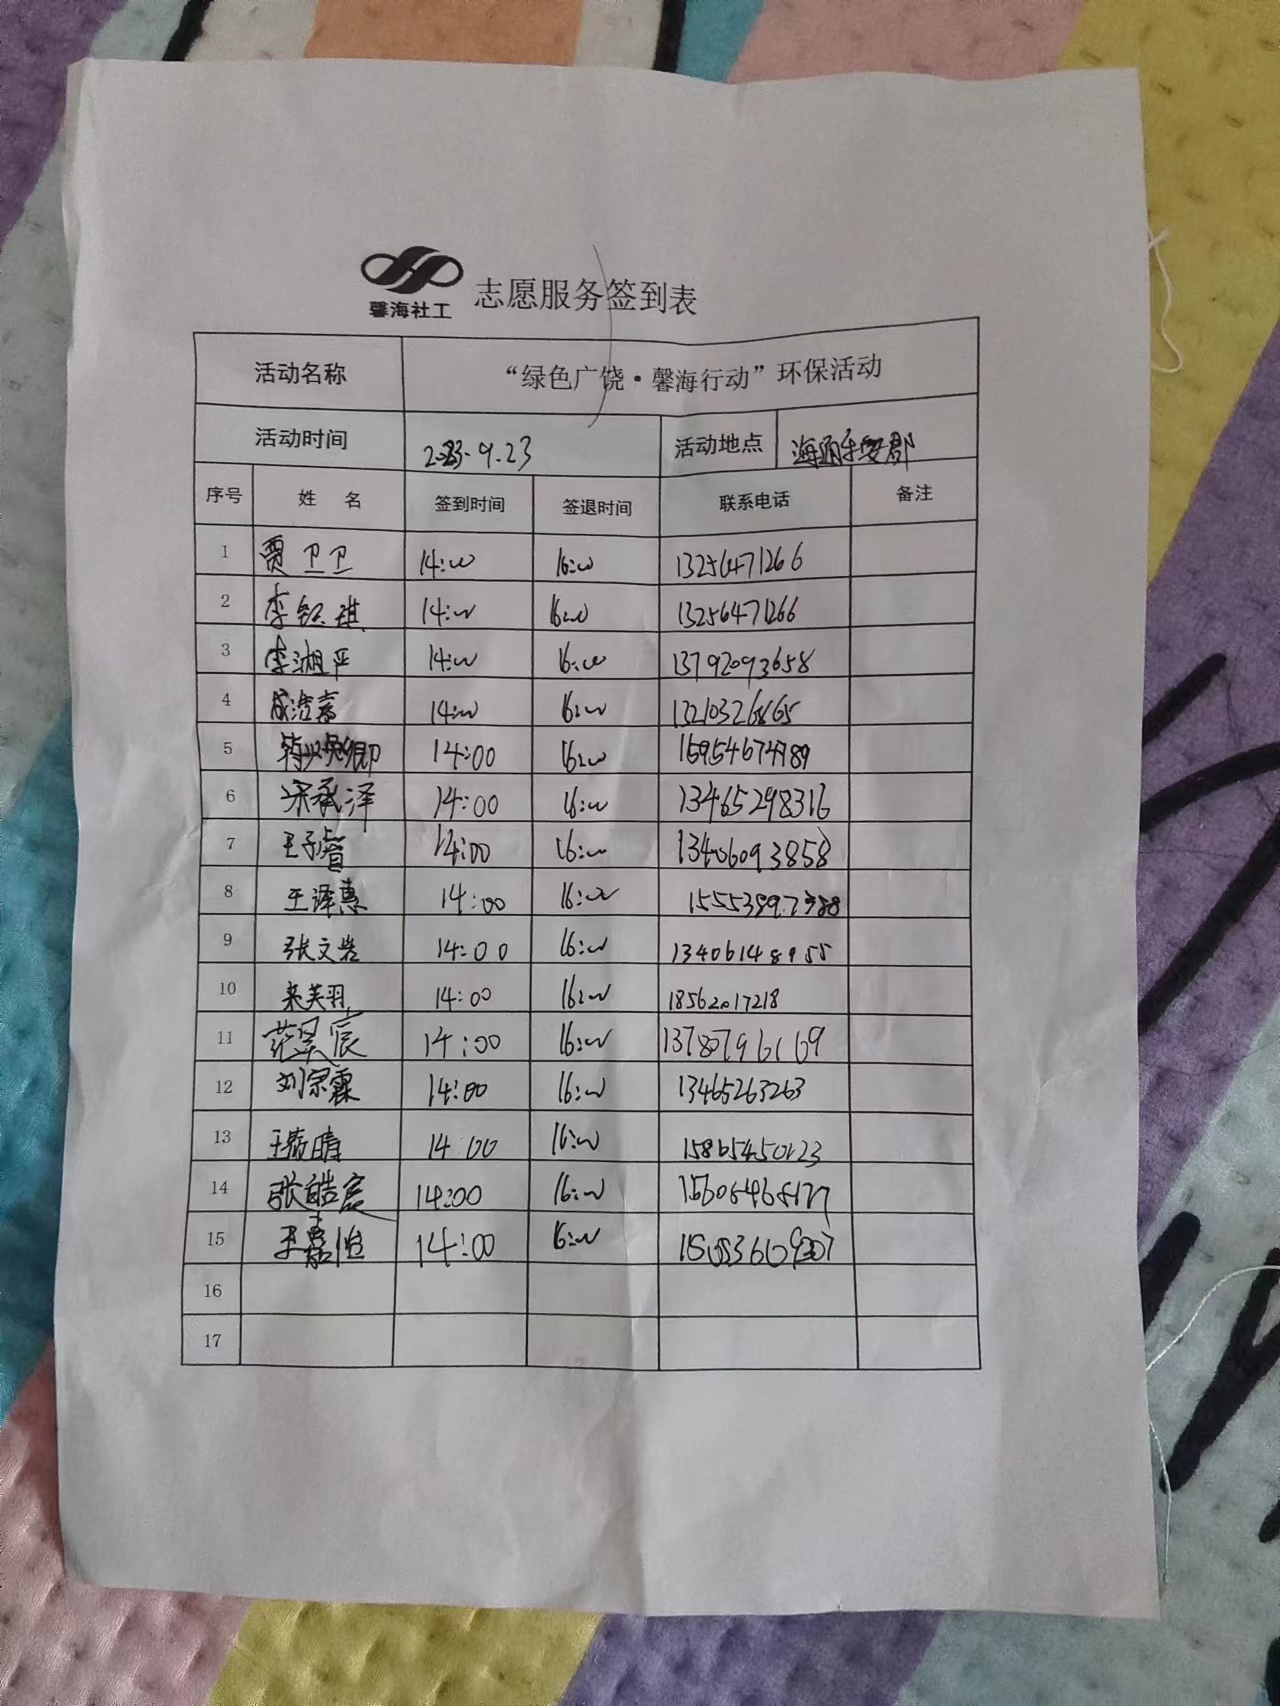 馨海社工 志愿服务签到表
活动名称 “绿色广饶·馨海行动”环保活动
活动时间 2023.9.23 活动地点
序号 姓 名 签到时间 签退时间 联系电话 备注
1 贾卫卫 14:00 16:00 13256471266
2 李钰琪 14:00 16:00 13256471266
3 李湘平 14:00 16:00 13792093658
4 成浩嘉 14:00 16:00
5 14:00 16:00
6 宋承泽 14:00 16:00 13465298316
7 王子睿 14:00 16:00 13406093858
8 王泽惠 14:00 16:00
9 张文岩 14:00 16:00 13406148955
10 来芙羽 14:00 16:00 18562017218
11 范景宸 14:00 16:00
12 刘宗霖 14:00 16:00 13465263263
13 14:00 16:00 15865450123
14 张皓宸 14:00 16:00
15 王嘉怡 14:00 16:00
16
17